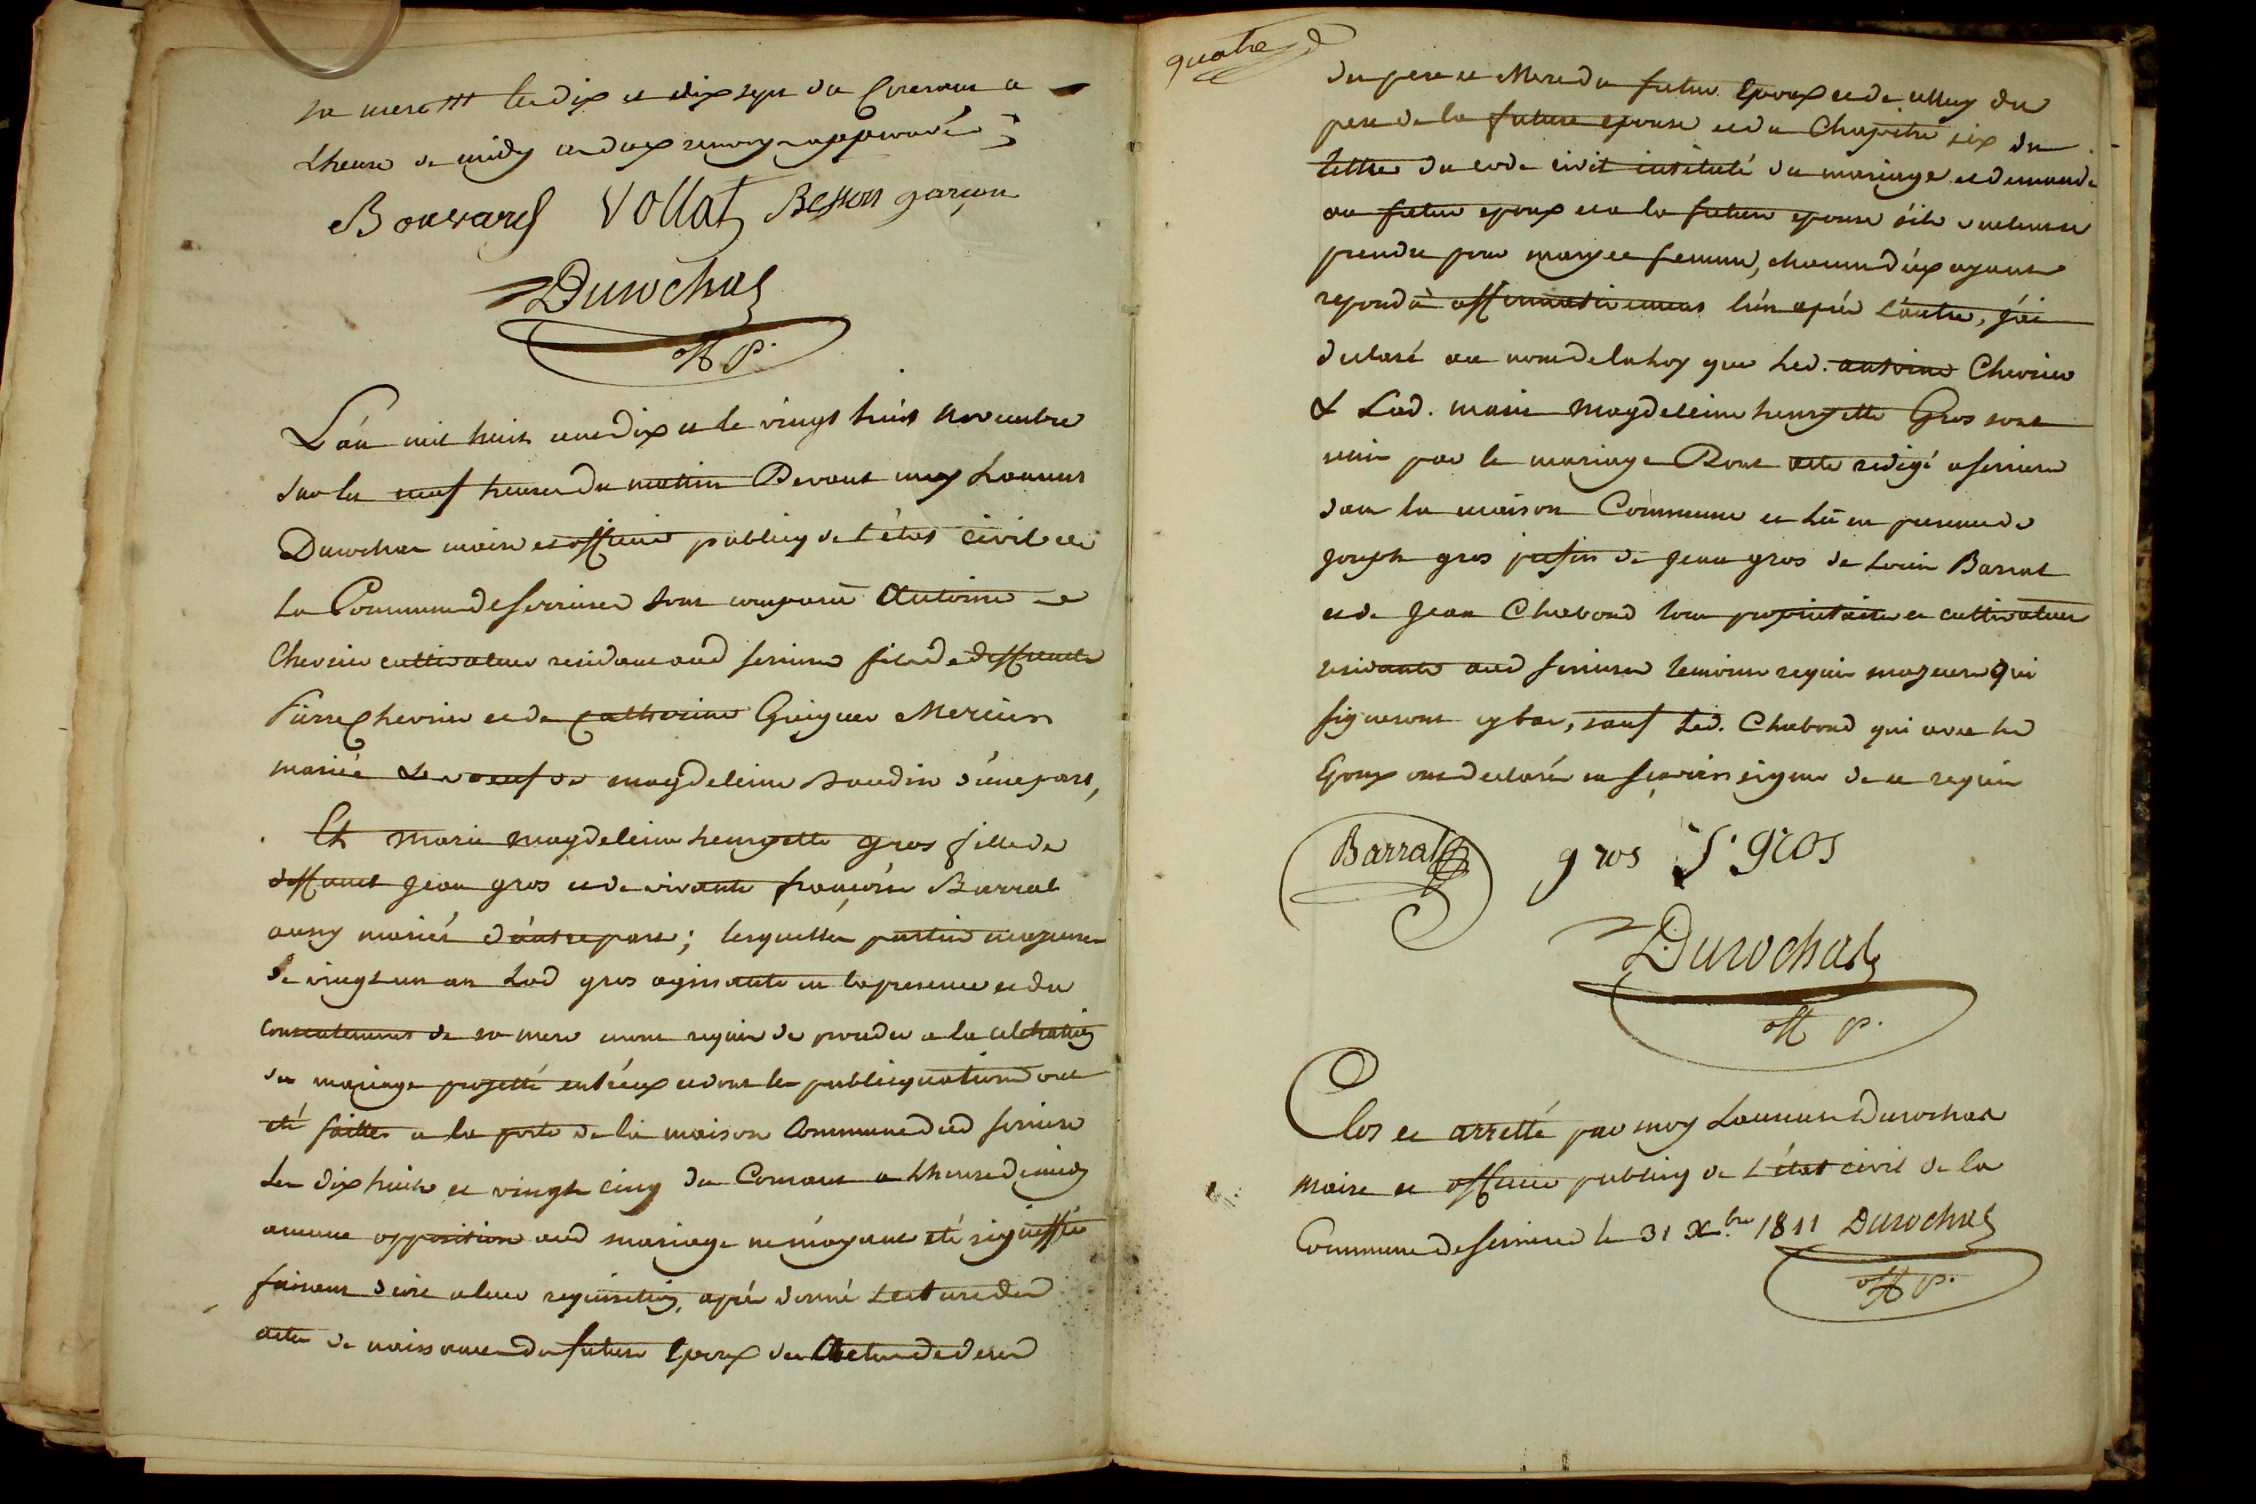 sa mere ttt les dix et dix sept du Courant a
Lheure de midy les deux renvoys approuvés
Bouvard Vollat Besson garçon
Durochas
off p.
L'an mil huit cent dix et le vingt huit novembre
sur les neuf heures du matin Devant moy Laurent
Durochas maire et officier publicq de l'état civil de
la Commune de serrieres sont comparu Antoine
Chevrier cultivateur residant aud serrieres fils de deffunts
Pierre Chevrier et de Catherine Guiguer Mercier
mariés & veuf de magdeleine Baudin d'une part,
Et marie magdeleine henryette gros fille de
deffunct jean gros et de vivante françoise Barral
aussy mariés d'autre part; lesquelles parties majeures
de vingt un an Lad gros agissante en la presence et du
consentement de sa mere mont requis de proceder a la celebration
du mariage projetté entr'eux et dont les publicquations ont
été faittes a la porte de la maison Commune dud serrieres
Les dix huit et vingt cinq du Courant a Lheure de midy
aucune opposition aud mariage ne m'ayant été signiffiée
faisant droit a leur requisition, après donné Lecture des
actes de naissance des futurs Epoux des Actes de deces
quatre
des pere et Mere du futur Epoux et de celluy du
pere de la future epouse et du Chapitre six du
tittre du code civil intitulé du mariage ai demandé
au futur epoux et a la future epouse s'ils veulent se
prendre pour mary et femme, chacun d'eux ayant
repondû affirmativement l'un après L'autre, j'ai
declaré au nom de la Loy que Led. antoine Chevrier
& Lad. marie magdeleine henryette Gros sont
unis par le mariage Dont acte redigé a serrieres
dans la maison Commune et Lû en presence de
joseph gros de jean gros de Louis Barral
et de jean Chabond tous proprietaires et cultivateurs
residants aud serrieres temoins requis majeurs qui
signeront cy bas, sauf Led. Chabond qui avec les
Epoux ont declaré ne sçavoir signer de ce requis
Barral gros J. gros
Durochas
off p.
Clos et arretté par moy Laurent Durochas
maire et officier publicq de L'état civil de la
Commune de serrieres le 31 Xbre 1811 Durochas
off p.